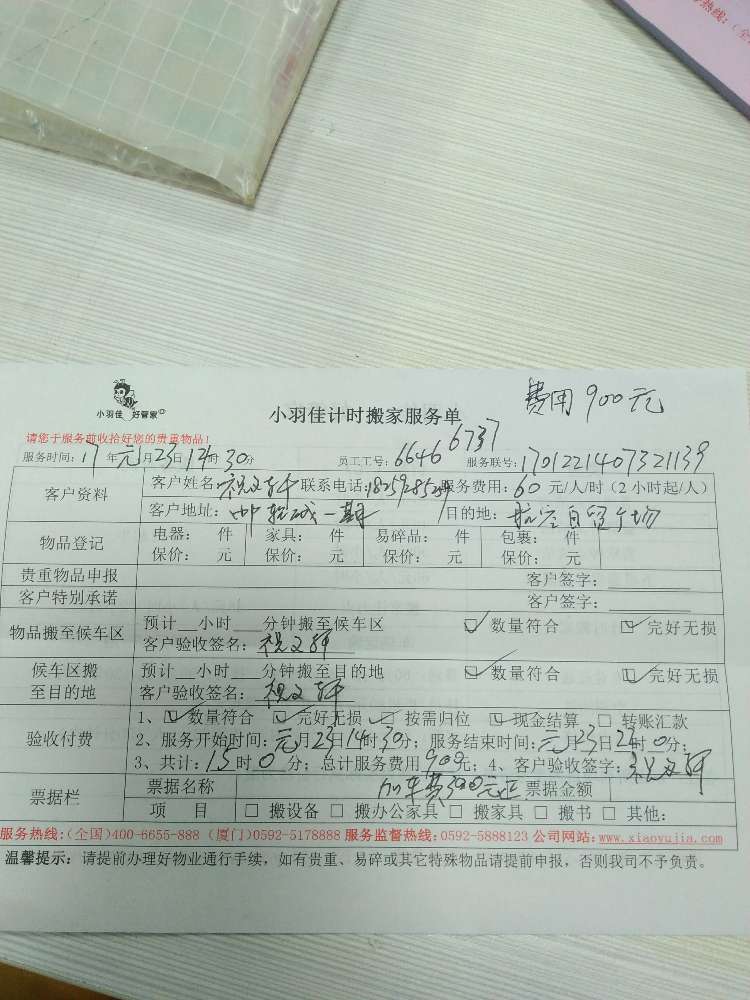 热线：（全
小羽佳 好管家
小羽佳计时搬家服务单
费用 900元
请您于服务前收拾好您的贵重物品！
服务时间：17年元月23日14时30分 员工工号：6646 6737 服务联号：1701221407321139
客户资料 客户姓名： 联系电话： 服务费用：60 元/人/时（2 小时起/人）
客户地址： 一期 目的地：
物品登记 电器： 件 家具： 件 易碎品： 件 包裹： 件
保价： 元 保价： 元 保价： 元 保价： 元
贵重物品申报 客户签字：
客户特别承诺 客户签字：
物品搬至候车区 预计__小时___分钟搬至候车区 ☑ 数量符合 ☑ 完好无损
客户验收签名：祝文轩
候车区搬至目的地 预计__小时___分钟搬至目的地 ☑ 数量符合 ☑ 完好无损
客户验收签名：祝文轩
验收付费 1、☑ 数量符合 ☑ 完好无损 ☑ 按需归位 ☑ 现金结算 □ 转账汇款
2、服务开始时间：元月23日14时30分；服务结束时间：元月23日 时0分；
3、共计：15时0分；总计服务费用900元；4、客户验收签字：祝文轩
票据栏 票据名称 加车费300元正 票据金额
项 目 □ 搬设备 □ 搬办公家具 □ 搬家具 □ 搬书 □ 其他：
服务热线：（全国）400-6655-888（厦门）0592-5178888 服务监督热线：0592-5888123 公司网站：www.xiaoyujia.com
温馨提示：请提前办理好物业通行手续，如有贵重、易碎或其它特殊物品请提前申报，否则我司不予负责。